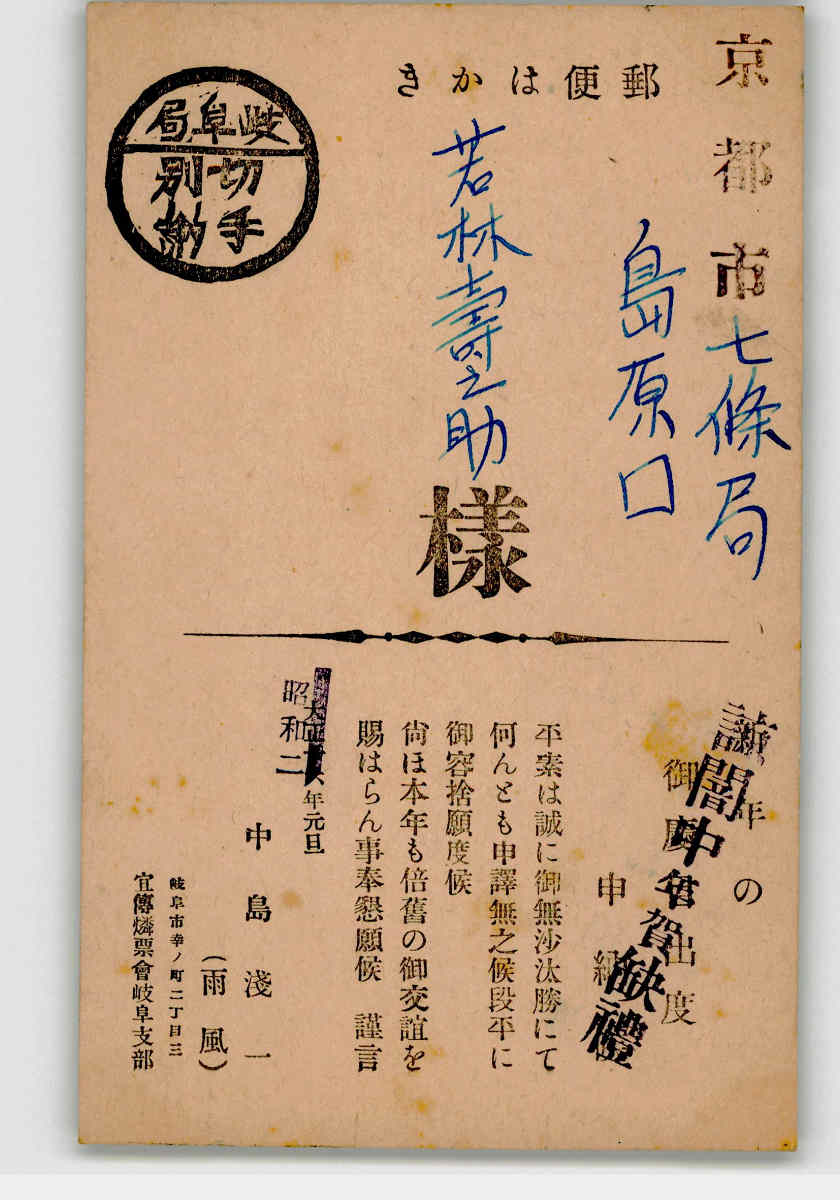 郵便はかき
岐阜局
切手
別納
京都市七條局
島原口
若林壽之助
樣
諒闇中年賀缺禮
年の
御慶 出度
申
平素は誠に御無沙汰勝にて
何んとも申譯無之候段平に
御容捨願度候
尙ほ本年も倍舊の御交誼を
賜はらん事奉懇願候 謹言
大正
昭和二
年元旦
中島淺一
(雨風)
岐阜市幸ノ町二丁目三
宣傳燐票會岐阜支部